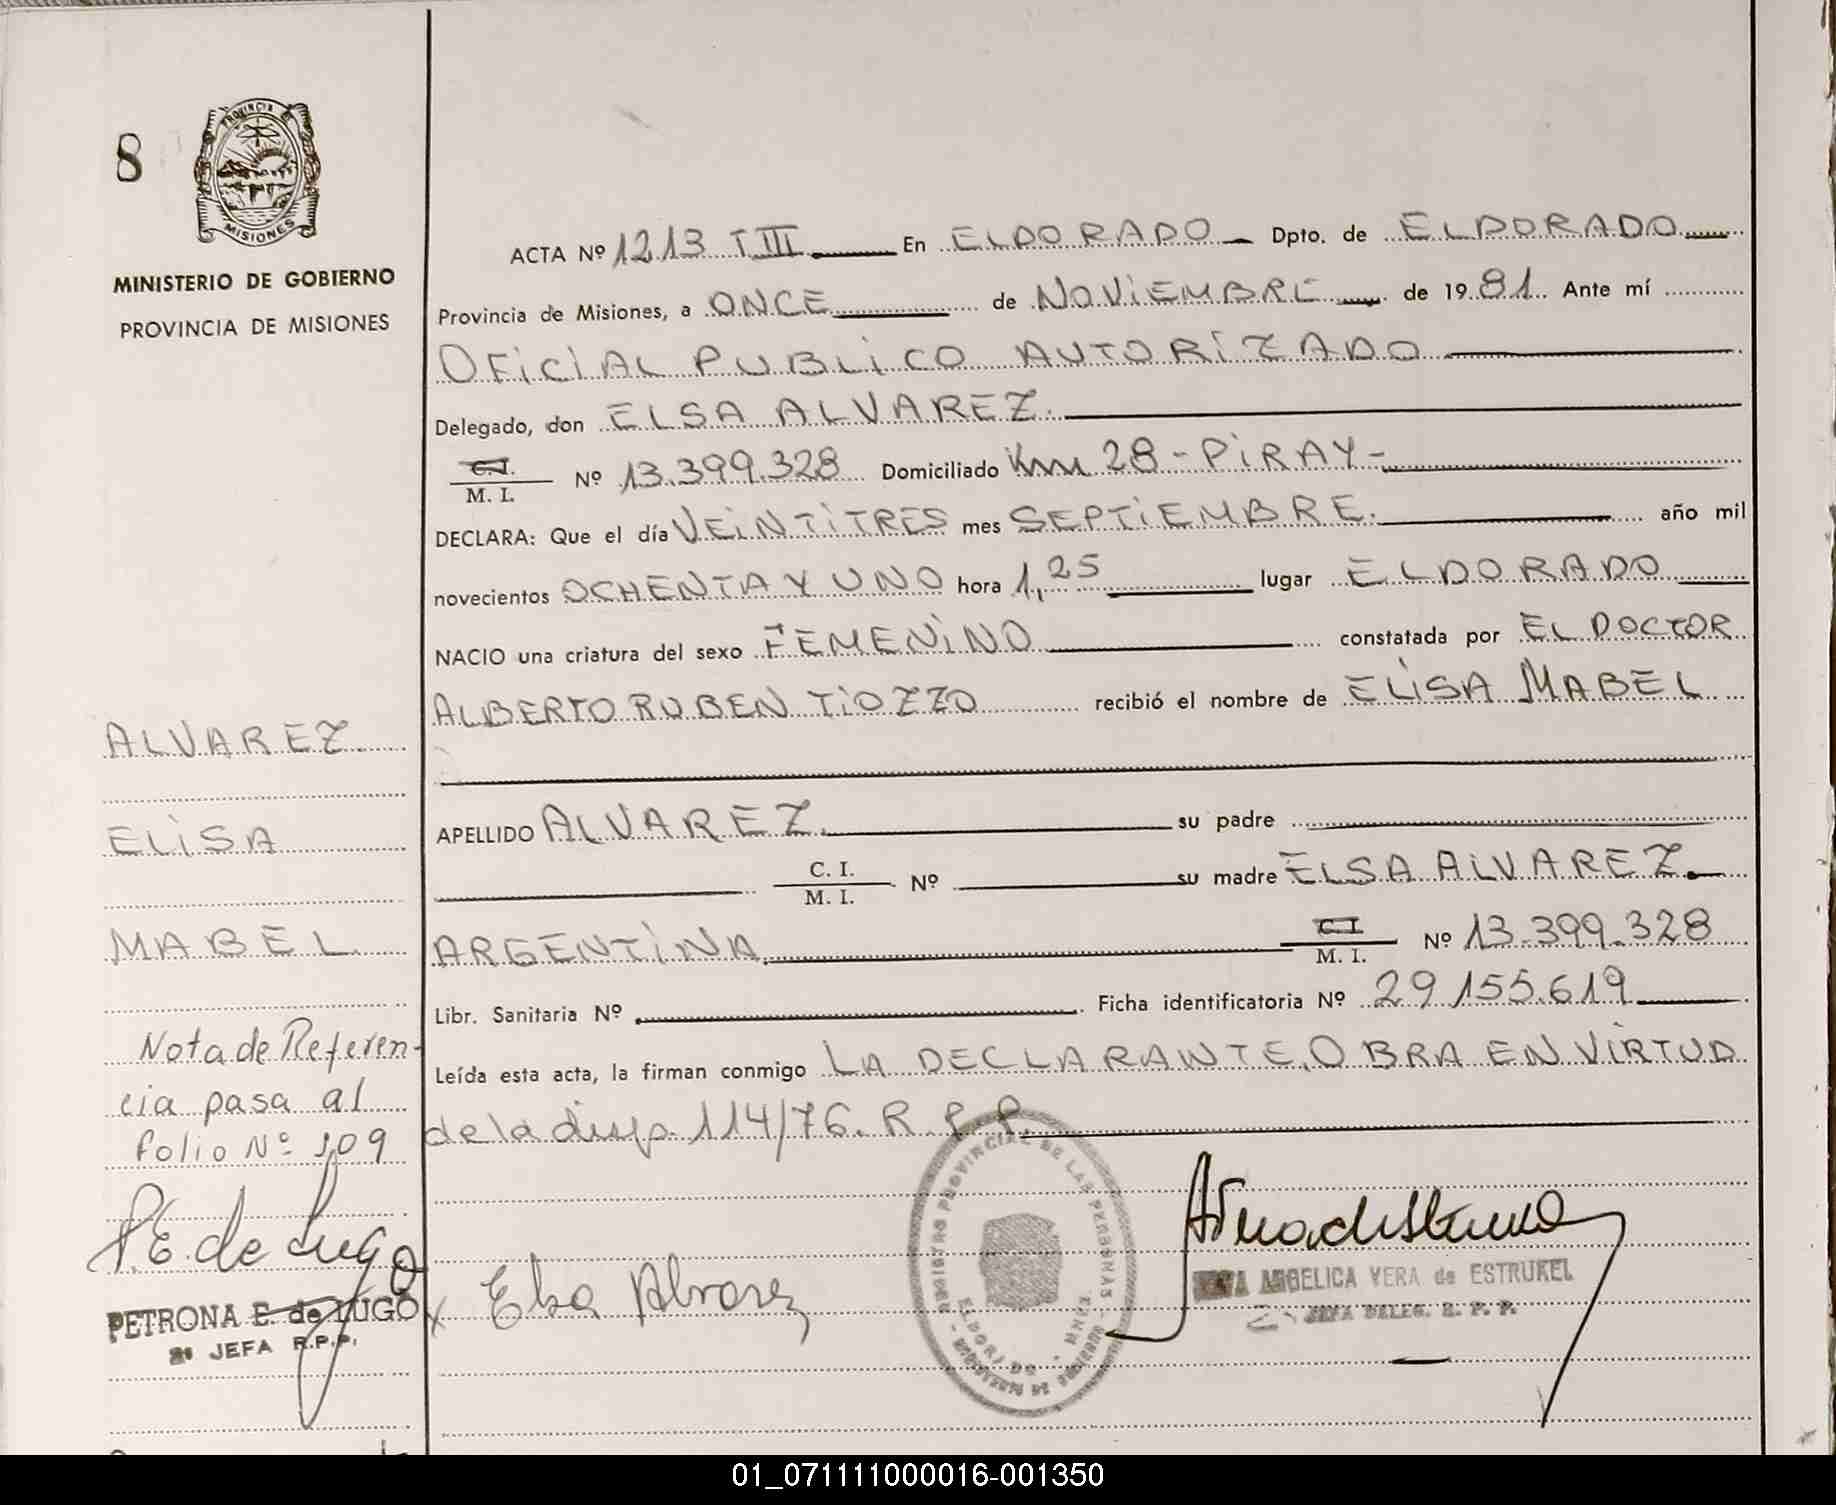 8
PROVINCIA DE
MISIONES
MINISTERIO DE GOBIERNO
PROVINCIA DE MISIONES
ACTA Nº 1213 T III En ELDORADO Dpto. de ELDORADO
Provincia de Misiones, a ONCE de NOVIEMBRE de 1981. Ante mí
OFICIAL PUBLICO AUTORIZADO
Delegado, don ELSA ALVAREZ.
C.I.
M. I. Nº 13.399.328 Domiciliado Km 28 - PIRAY -
DECLARA: Que el día VEINTITRES mes SEPTIEMBRE. año mil
novecientos OCHENTA Y UNO hora 1,25 lugar ELDORADO
NACIO una criatura del sexo FEMENINO constatada por EL DOCTOR
ALBERTO RUBEN TIOZZO recibió el nombre de ELISA MABEL
APELLIDO ALVAREZ. su padre
C. I.
M. I. Nº su madre ELSA ALVAREZ.
ARGENTINA C.I.
M. I. Nº 13.399.328
Libr. Sanitaria Nº Ficha identificatoria Nº 29.155.619
Leída esta acta, la firman conmigo LA DECLARANTE, OBRA EN VIRTUD
de la disp. 114/76. R. P. P.
ALVAREZ.
ELISA
MABEL
Nota de Referen-
cia pasa al
folio Nº 109
P.E. de Lugo
PETRONA E. de LUGO
2ª JEFA R.P.P.
x Elsa Alvarez
REGISTRO PROVINCIAL DE LAS PERSONAS
ELDORADO - MNES.
MINISTERIO DE GOBIERNO
ANGELICA VERA de ESTRUKEL
JEFA DELEG. R. P. P.
01_071111000016-001350